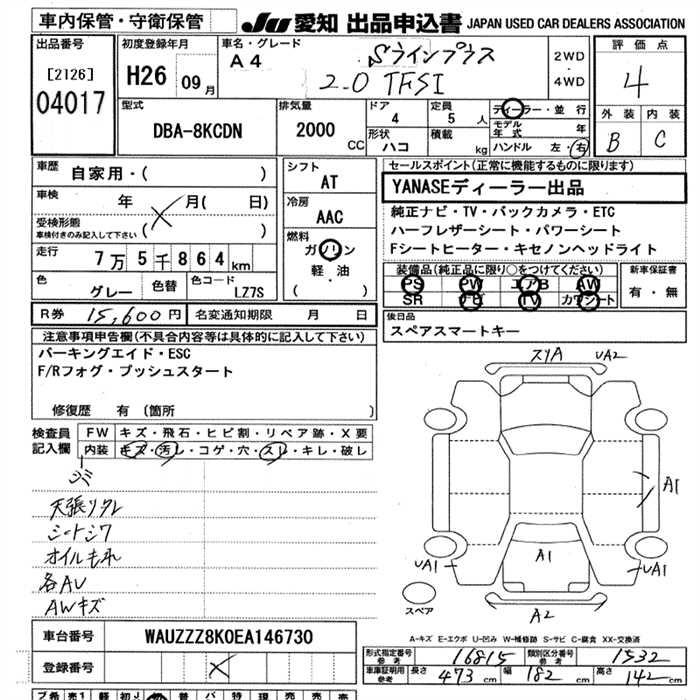 車内保管・守衛保管 JU 愛知 出品申込書 JAPAN USED CAR DEALERS ASSOCIATION
出品番号 初度登録年月 車名・グレード 評価点
[2126] H26 09月 A4 Sラインプラス 2WD
04017 2.0 TFSI 4WD 4
型式 排気量 ドア 定員 ディーラー・並行 外装 内装
DBA-8KCDN 2000 CC 4 5人 モデル年式 年 B C
形状 ハコ 積載 kg ハンドル 左・右
車歴 自家用・( ) シフト セールスポイント(正常に機能するものに限ります)
AT YANASEディーラー出品
車検 年 月( 日) 冷房 純正ナビ・TV・バックカメラ・ETC
受検形態 AAC ハーフレザーシート・パワーシート
車検付きのみ記入して下さい ( ) 燃料 Fシートヒーター・キセノンヘッドライト
走行 7万5千864km ガソリン 装備品(純正品に限り○をつけて下さい) 新車保証書
軽・油 PS PW エアB AW 有・無
色 グレー 色替 色コード LZ7S ( ) SR ナビ TV カワシート
R券 15,600円 名変通知期限 月 日 後日品
スペアスマートキー
注意事項申告欄(不具合内容等は具体的に記入して下さい)
パーキングエイド・ESC
F/Rフォグ・プッシュスタート
修復歴 有(箇所 )
検査員記入欄 FW キズ・飛石・ヒビ割・リペア跡・X要
内装 キズ・汚レ・コゲ・穴・スレ・キレ・破レ
シミ
天張リタレ
シートシワ
オイルもれ
各AU
AWキズ
スリA UA2
A1
A1
UA1 UA1
スペア A2
A-キズ E-エクボ U-凹み W-補修跡 S-サビ C-腐食 XX-交換済
車台番号 WAUZZZ8K0EA146730
型式指定番号 参考 16815 類別区分番号 参考 1532
登録番号
車庫証明用 参考 長さ 473cm 幅 182cm 高さ 142cm